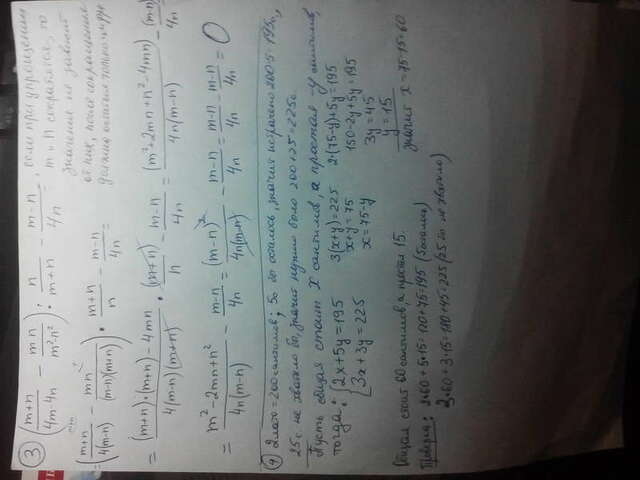 ③ ( (m+n)/(4m-4n) - mn/(m²-n²) ) : n/(m+n) - (m-n)/4n = , если при упрощении
m и n сократятся, то
значение не зависит
от них, после сокращения
должна остаться только цифра
= ( (m+n)/(4(m-n)) - mn/((m-n)(m+n)) ) · (m+n)/n - (m-n)/4n =
= ((m+n)·(m+n)-4mn)/(4(m-n)(m+n)) · (m+n)/n - (m-n)/4n = (m²+2mn+n²-4mn)/(4n(m-n)) - (m-n)/4n
= (m²-2mn+n²)/(4n(m-n)) - (m-n)/4n = (m-n)²/(4n(m-n)) - (m-n)/4n = (m-n)/4n - (m-n)/4n = 0
④ 2 лата = 200 сантимов; 5с осталось, значит потрачено 200-5=195с,
25с не хватило, значит нужно было 200+25=225с.
Пусть общая стоит x сантимов, а простая - y сантимов,
тогда:
{ 2x+5y=195
3x+3y=225
3(x+y)=225
x+y=75
x=75-y
2·(75-y)+5y=195
150-2y+5y=195
3y=45
y=15
значит x=75-15=60
стоит 60 сантимов, а простая 15.
Проверка: 2·60+5·15=120+75=195 (5 остались)
3·60+3·15=180+45=225 (25 не хватило)